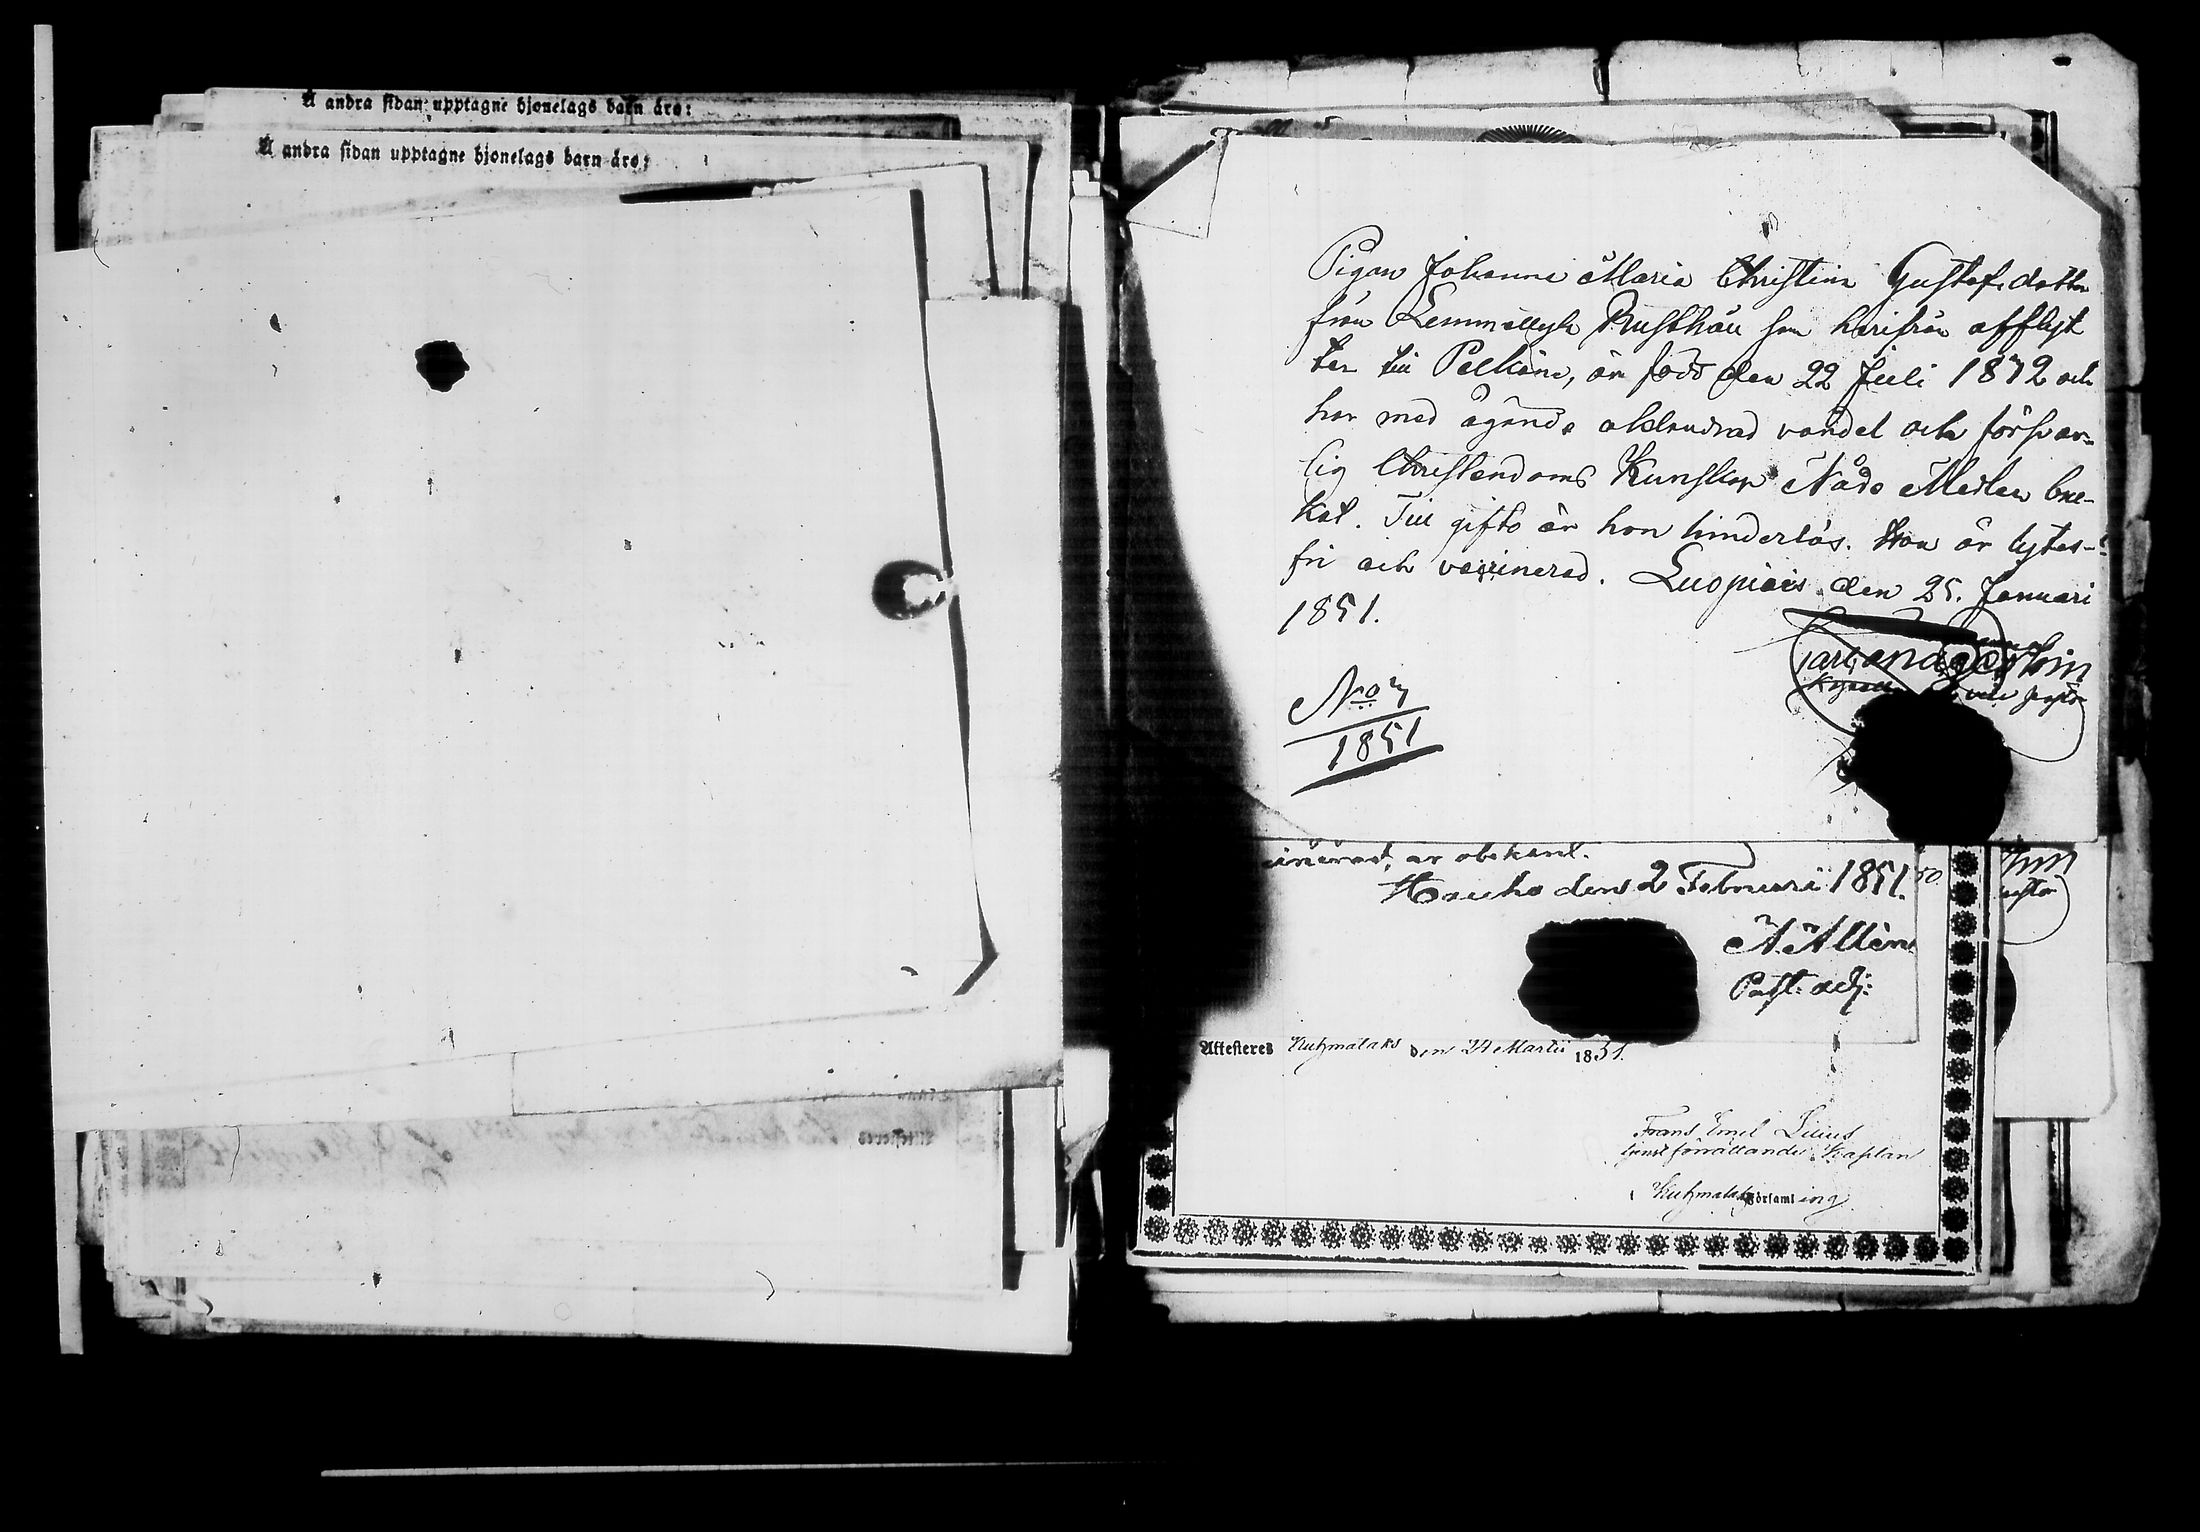 Å andra sidan upptagne hjonelags barn äro:
Å andra sidan upptagne hjonelags barn äro:
Pigan Johanna Maria Christina Gustafsdotter
från Lemmettylä Rusthåll som härifrån afflyt
ter till Pelkäne, är född den 22 Juli 1832 och
har med ägande oklandrad vandel och försvar-
lig Christendoms Kunskap Nåde Medlen bru-
kat. Till gifto är hon hinderlös. Hon är lytes-
fri och vaccinerad. Luopiois den 25. Januari
1851.
No 7
1851
är obekant.
Hauho den 2 Februari 1851.
A. Allèn
Past: adj:
Attesteres Kuhmalaks den 24 Martii 1851.
Frans Emil Lilius
tjenstförrättande Kaplan
i Kuhmalaks Församling